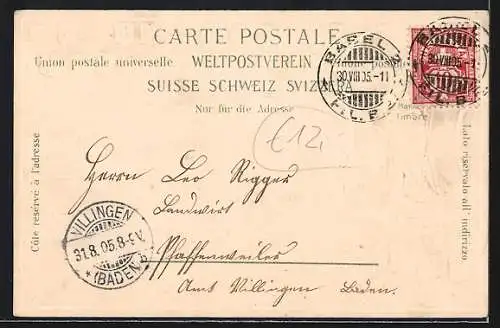 CARTE POSTALE
Union postale universelle WELTPOSTVEREIN Unione postale
SUISSE SCHWEIZ SVIZZERA
Nur für die Adresse
BASEL 2
30.VIII.05.-11
FIL. B.
BASEL 2
30.VIII.05
FIL. B.
Timbre
€12,
Côté réservé à l'adresse
Lato riservato all' indirizzo
Herrn Leo Rigger
Landwirt
Pfaffenweiler
Amt Villingen Baden.
VILLINGEN
31.8.05.8-9V.
*(BADEN)*